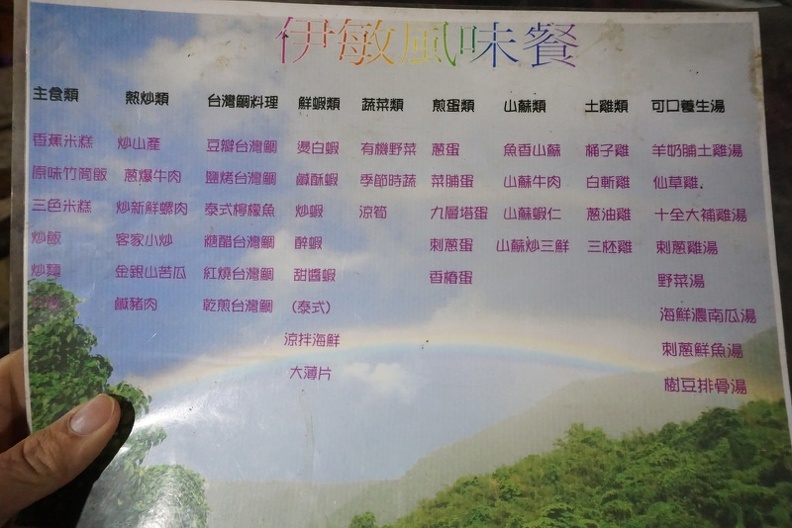 伊敏風味餐
主食類 熱炒類 台灣鯛料理 鮮蝦類 蔬菜類 煎蛋類 山蘇類 土雞類 可口養生湯
香蕉米糕 炒山產 豆瓣台灣鯛 燙白蝦 有機野菜 蔥蛋 魚香山蘇 桶子雞 羊奶脯土雞湯
原味竹筒飯 蔥爆牛肉 鹽烤台灣鯛 鹹酥蝦 季節時蔬 菜脯蛋 山蘇牛肉 白斬雞 仙草雞.
三色米糕 炒新鮮螺肉 泰式檸檬魚 炒蝦 涼筍 九層塔蛋 山蘇蝦仁 蔥油雞 十全大補雞湯
炒飯 客家小炒 糖醋台灣鯛 醉蝦 刺蔥蛋 山蘇炒三鮮 三杯雞 刺蔥雞湯
炒麵 金銀山苦瓜 紅燒台灣鯛 甜醬蝦 香椿蛋 野菜湯
鹹豬肉 乾煎台灣鯛 (泰式) 海鮮濃南瓜湯
涼拌海鮮 刺蔥鮮魚湯
大薄片 樹豆排骨湯